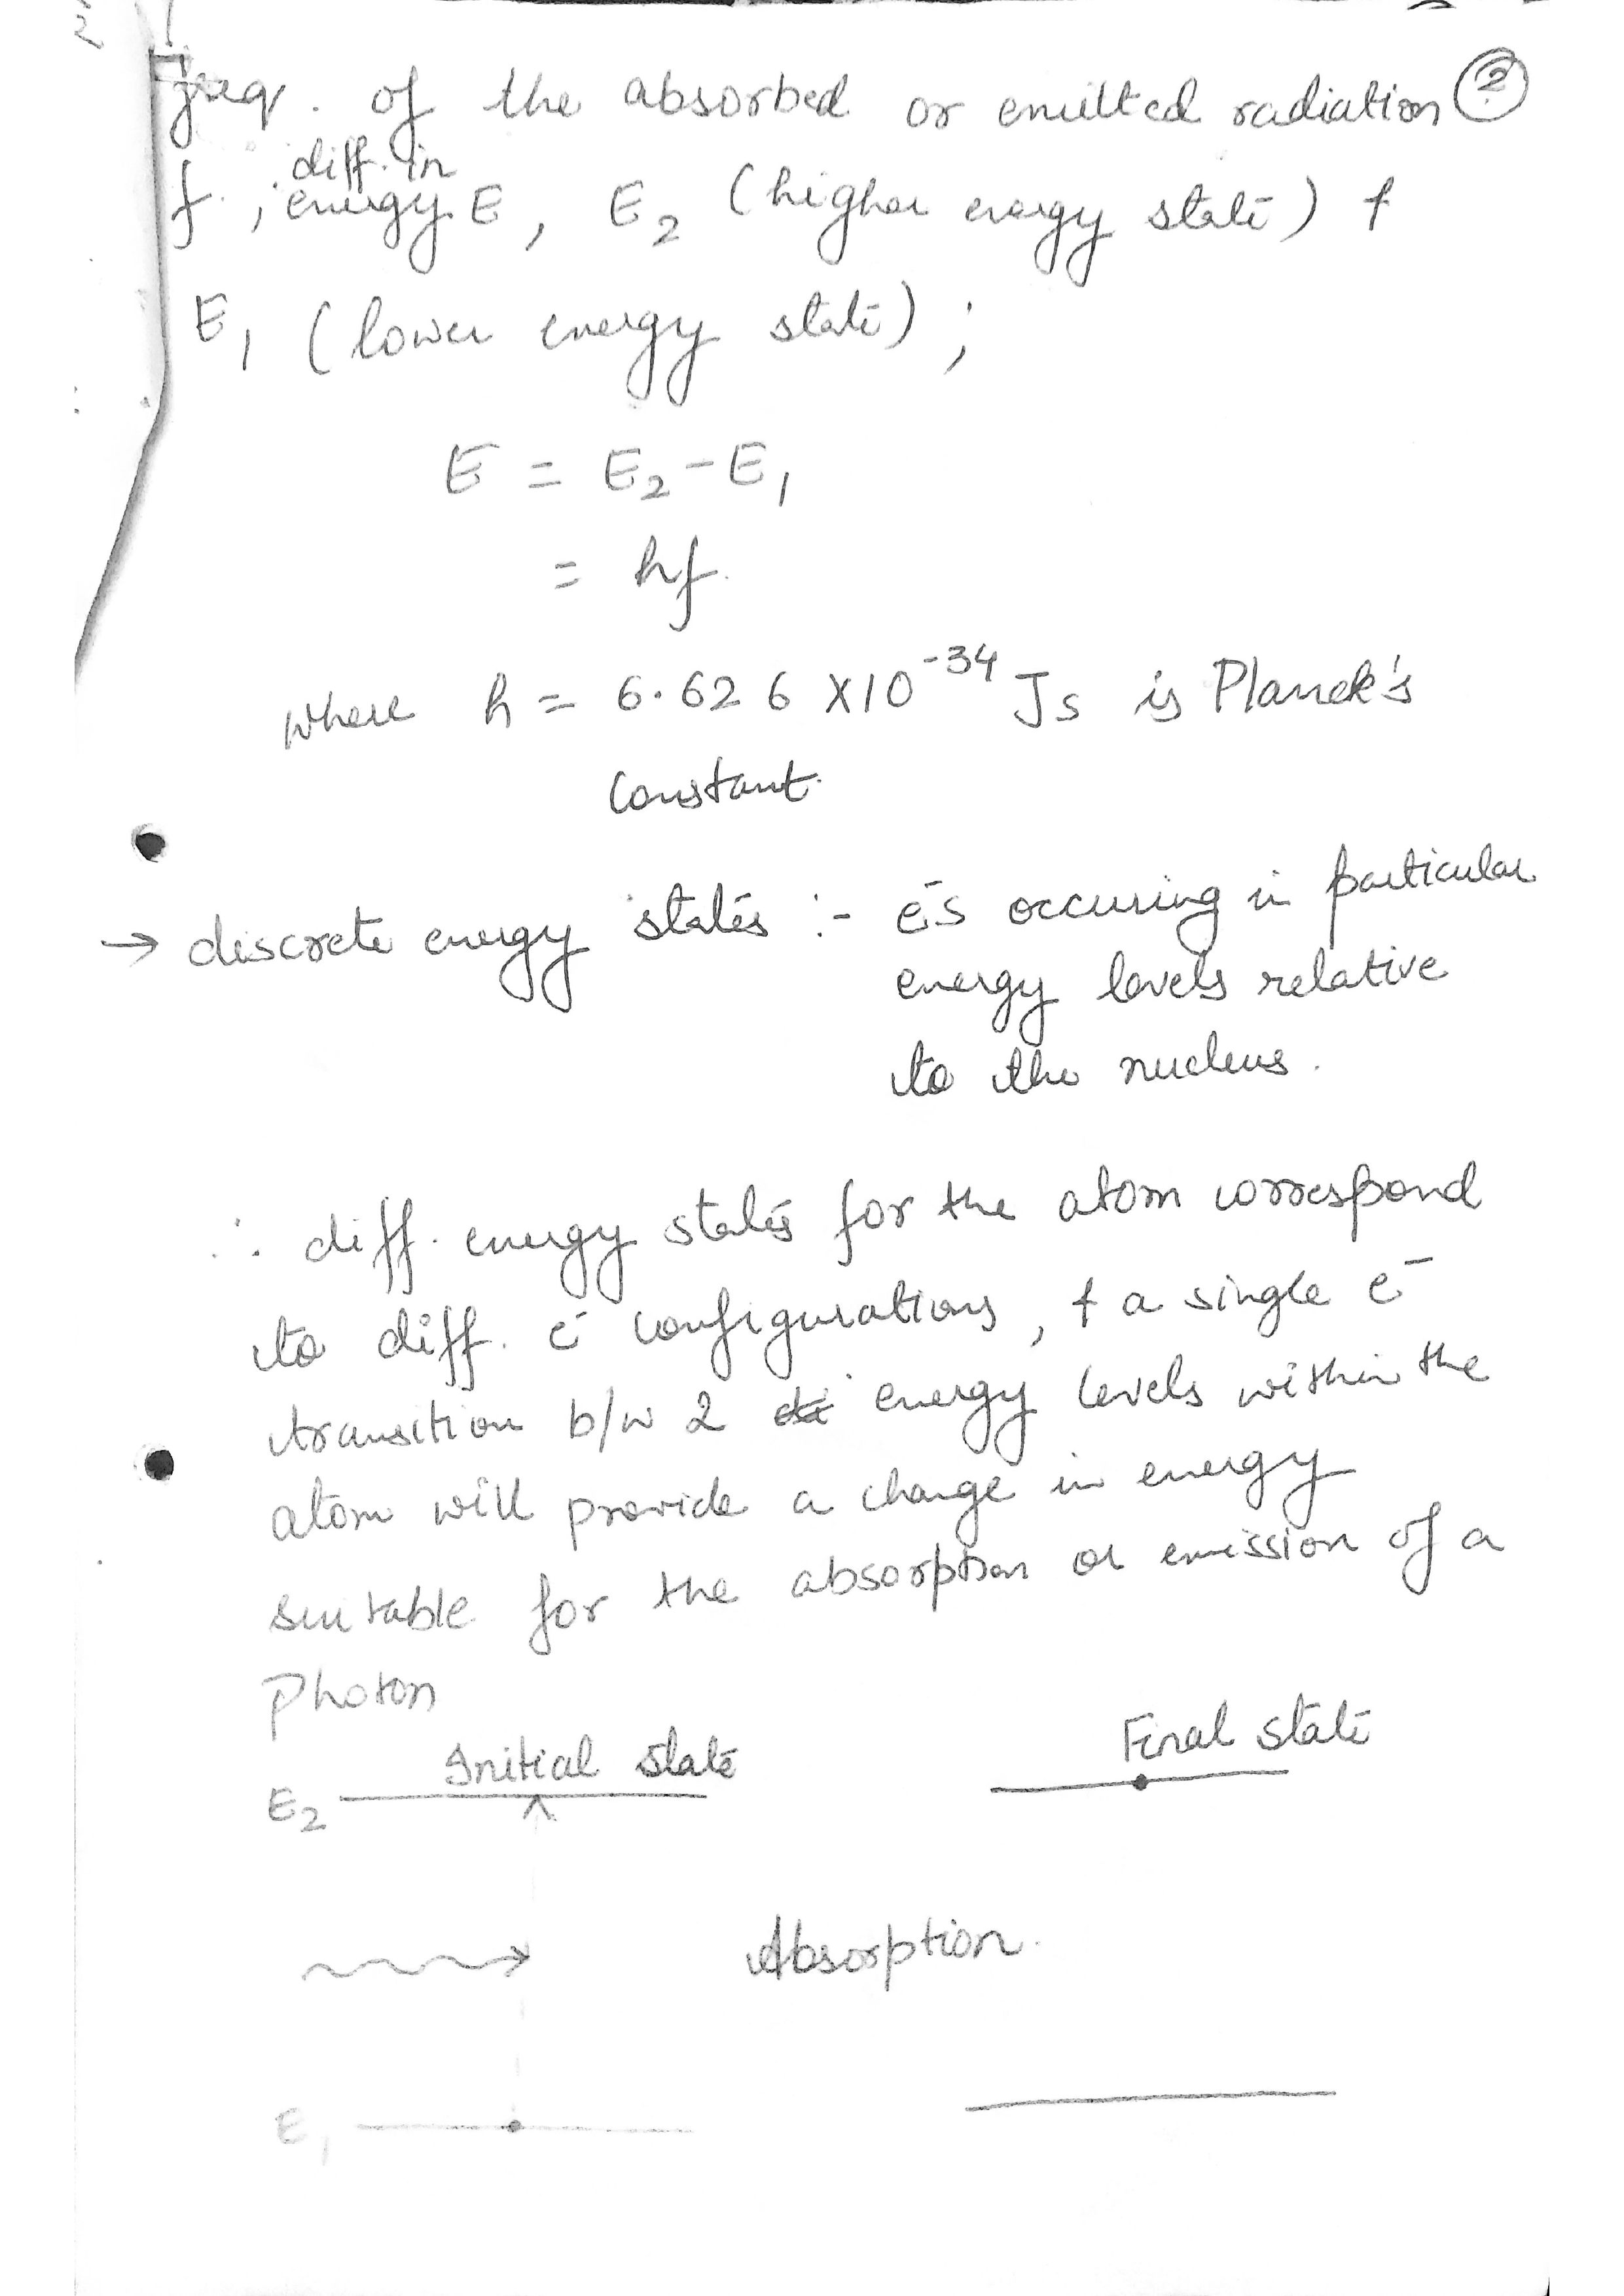 freq. of the absorbed or emitted radiation ②
diff. in
f ; energy E, E₂ (higher energy state) &
E₁ (lower energy state) ;
E = E₂ - E₁
= hf
where h = 6.626 X10⁻³⁴ Js is Planck's
constant.
→ discrete energy states :- e⁻s occuring in particular
energy levels relative
to the nucleus.
∴ diff. energy states for the atom correspond
to diff. e⁻ configurations, & a single e⁻
transition b/w 2 energy levels within the
atom will provide a change in energy
suitable for the absorption or emission of a
Photon
Initial state Final state
E₂
Absorption.
E₁